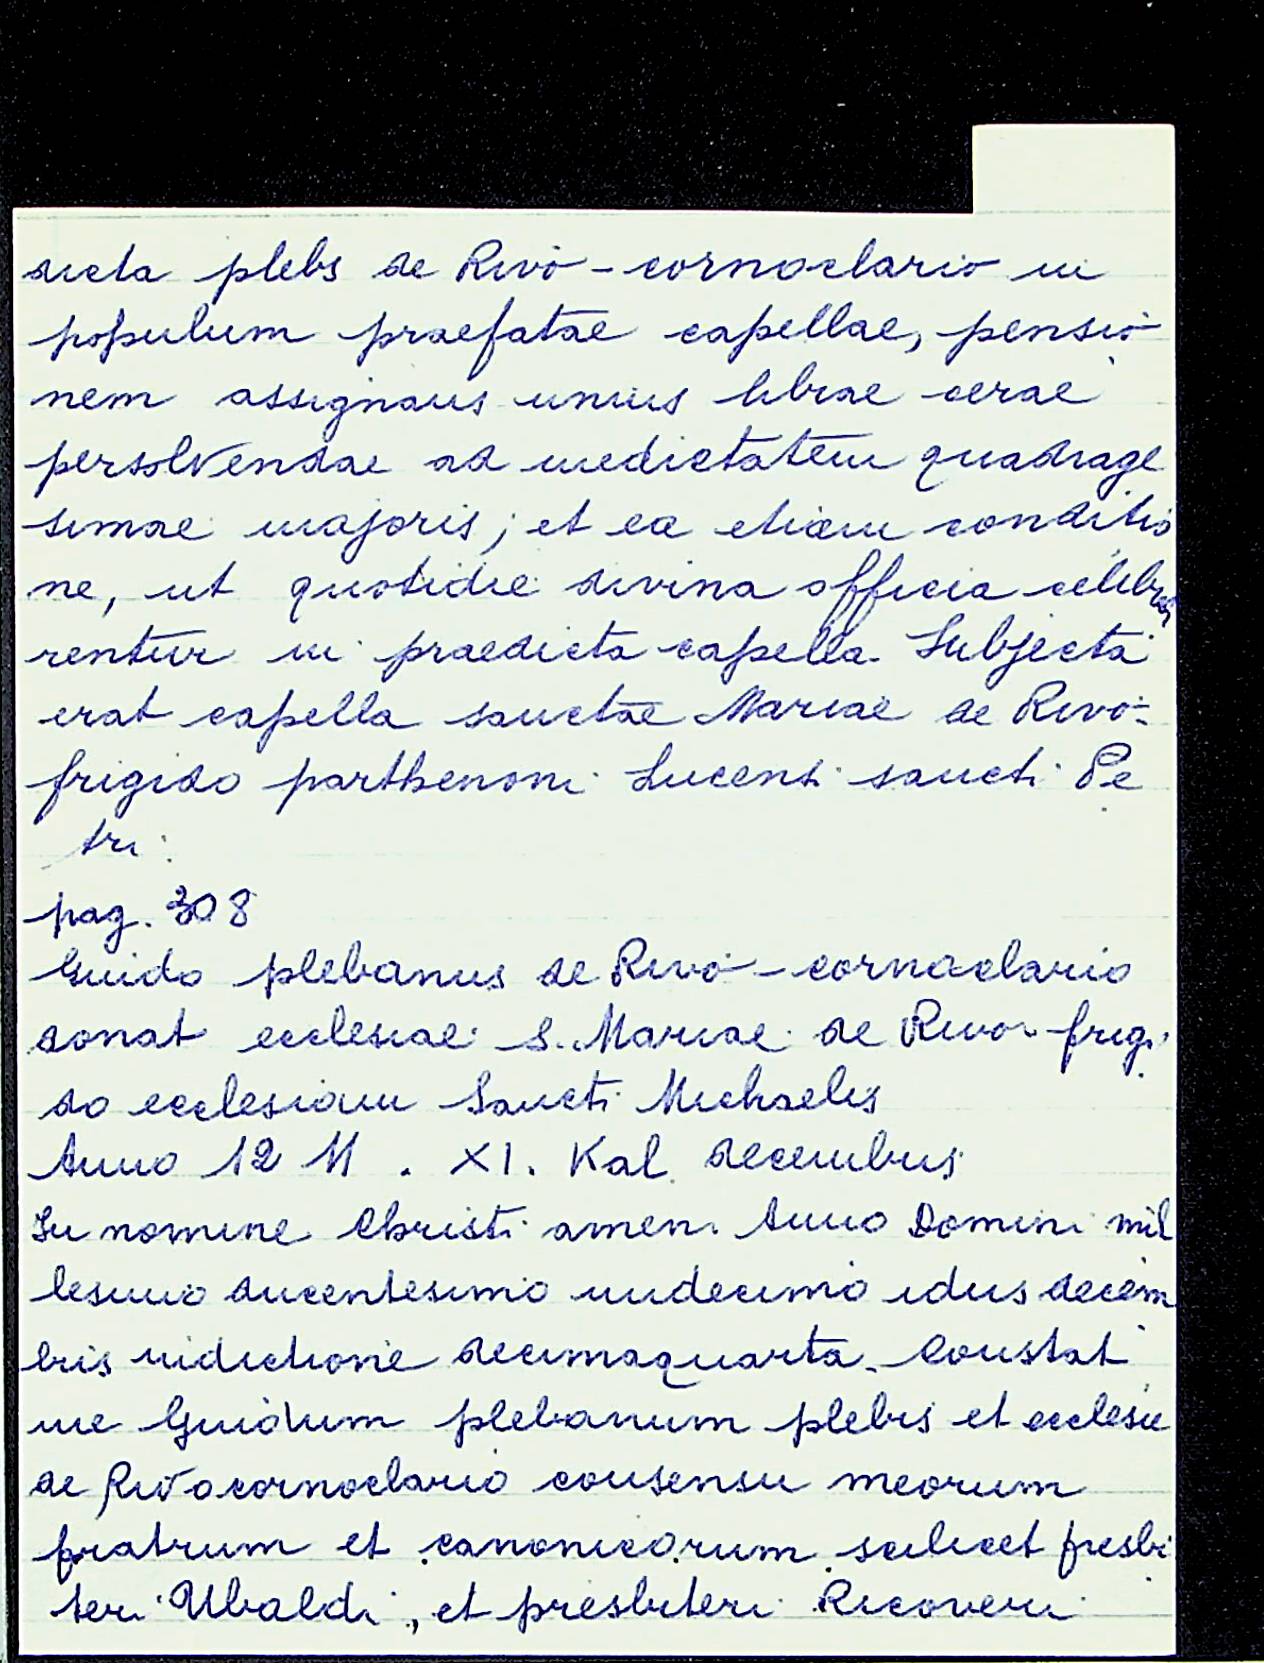 dicta plebs de Rivo-cornoclario in
populum praefatae capellae, pensio
nem assignans unius librae cerae
persolvendae ad medictatem quadrage
simae majoris; et ea etiam conditio
ne, ut quotidie divina officia celebra
rentur in praedicta capella. Subjecta
erat capella sanctae Mariae de Rivo-
frigido parthenoni Lucensi sancti Pe
tri.
pag. 308
Guido plebanus de Rivo-cornoclario
donat ecclesiae S. Mariae de Rivo-frigi
do ecclesiam Sancti Michaelis
Anno 1211. XI. Kal decembris
In nomine Christi amen. Anno Domini mil
lesimo ducentesimo undecimo idus decem
bris indictione decimaquarta. Constat
me Guidum plebanum plebis et ecclesie
de Rivocornoclario consensu meorum
fratrum et canonicorum scilicet presbi
teri Ubaldi, et presbiteri Ricoveri